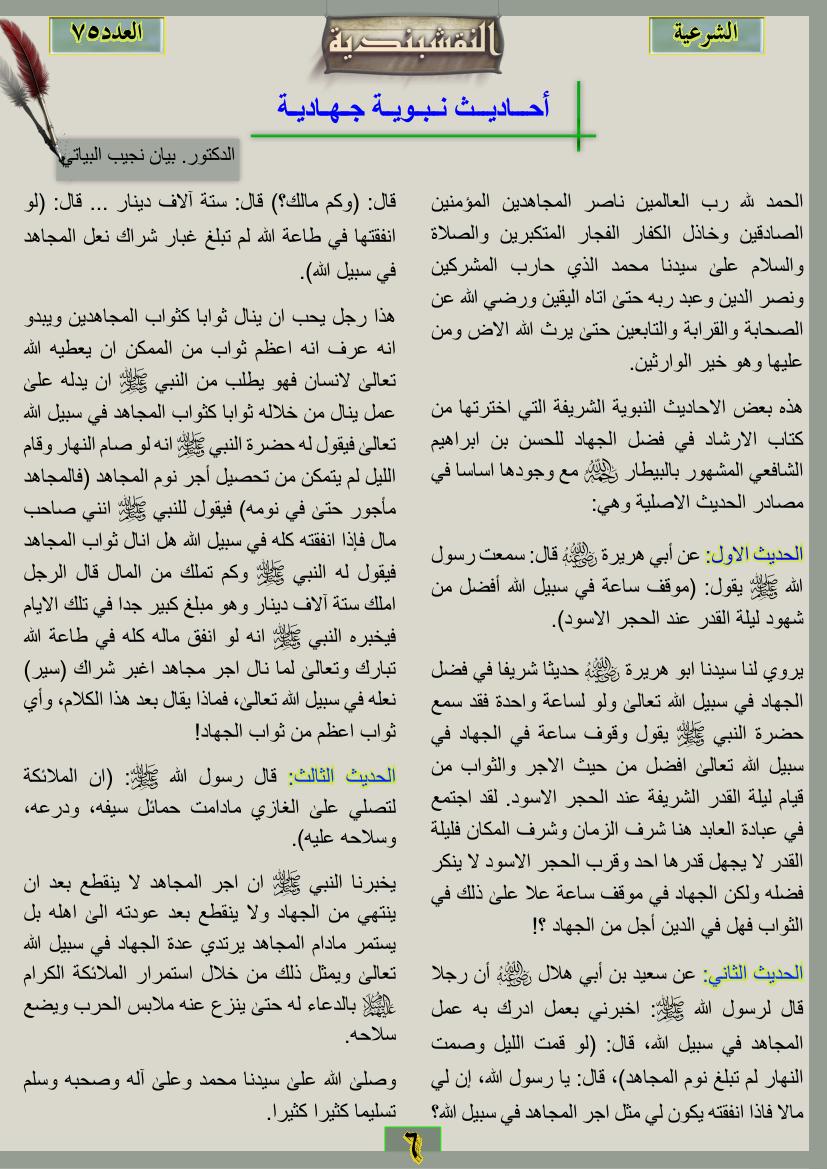 الشرعية
النقشبندية
العدد ٧٥
أحـــاديـــث نـــبـــويـــة جـــهـــاديـــة
الدكتور. بيان نجيب البياتي
الحمد لله رب العالمين ناصر المجاهدين المؤمنين
الصادقين وخاذل الكفار الفجار المتكبرين والصلاة
والسلام علىٰ سيدنا محمد الذي حارب المشركين
ونصر الدين وعبد ربه حتىٰ اتاه اليقين ورضي الله عن
الصحابة والقرابة والتابعين حتىٰ يرث الله الاض ومن
عليها وهو خير الوارثين.
هذه بعض الاحاديث النبوية الشريفة التي اخترتها من
كتاب الارشاد في فضل الجهاد للحسن بن ابراهيم
الشافعي المشهور بالبيطار رحمه الله مع وجودها اساسا في
مصادر الحديث الاصلية وهي:
الحديث الاول: عن أبي هريرة رضي الله عنه قال: سمعت رسول
الله ﷺ يقول: (موقف ساعة في سبيل الله أفضل من
شهود ليلة القدر عند الحجر الاسود).
يروي لنا سيدنا ابو هريرة رضي الله عنه حديثا شريفا في فضل
الجهاد في سبيل الله تعالىٰ ولو لساعة واحدة فقد سمع
حضرة النبي ﷺ يقول وقوف ساعة في الجهاد في
سبيل الله تعالىٰ افضل من حيث الاجر والثواب من
قيام ليلة القدر الشريفة عند الحجر الاسود. لقد اجتمع
في عبادة العابد هنا شرف الزمان وشرف المكان فليلة
القدر لا يجهل قدرها احد وقرب الحجر الاسود لا ينكر
فضله ولكن الجهاد في موقف ساعة علا علىٰ ذلك في
الثواب فهل في الدين أجل من الجهاد ؟!
الحديث الثاني: عن سعيد بن أبي هلال رضي الله عنه أن رجلا
قال لرسول الله ﷺ: اخبرني بعمل ادرك به عمل
المجاهد في سبيل الله، قال: (لو قمت الليل وصمت
النهار لم تبلغ نوم المجاهد)، قال: يا رسول الله، إن لي
مالا فاذا انفقته يكون لي مثل اجر المجاهد في سبيل الله؟
قال: (وكم مالك؟) قال: ستة آلاف دينار ... قال: (لو
انفقتها في طاعة الله لم تبلغ غبار شراك نعل المجاهد
في سبيل الله).
هذا رجل يحب ان ينال ثوابا كثواب المجاهدين ويبدو
انه عرف انه اعظم ثواب من الممكن ان يعطيه الله
تعالىٰ لانسان فهو يطلب من النبي ﷺ ان يدله علىٰ
عمل ينال من خلاله ثوابا كثواب المجاهد في سبيل الله
تعالىٰ فيقول له حضرة النبي ﷺ انه لو صام النهار وقام
الليل لم يتمكن من تحصيل أجر نوم المجاهد (فالمجاهد
مأجور حتىٰ في نومه) فيقول للنبي ﷺ انني صاحب
مال فإذا انفقته كله في سبيل الله هل انال ثواب المجاهد
فيقول له النبي ﷺ وكم تملك من المال قال الرجل
املك ستة آلاف دينار وهو مبلغ كبير جدا في تلك الايام
فيخبره النبي ﷺ انه لو انفق ماله كله في طاعة الله
تبارك وتعالىٰ لما نال اجر مجاهد اغبر شراك (سير)
نعله في سبيل الله تعالىٰ، فماذا يقال بعد هذا الكلام، وأي
ثواب اعظم من ثواب الجهاد!
الحديث الثالث: قال رسول الله ﷺ: (ان الملائكة
لتصلي علىٰ الغازي مادامت حمائل سيفه، ودرعه،
وسلاحه عليه).
يخبرنا النبي ﷺ ان اجر المجاهد لا ينقطع بعد ان
ينتهي من الجهاد ولا ينقطع بعد عودته الىٰ اهله بل
يستمر مادام المجاهد يرتدي عدة الجهاد في سبيل الله
تعالىٰ ويمثل ذلك من خلال استمرار الملائكة الكرام
عليهم السلام بالدعاء له حتىٰ ينزع عنه ملابس الحرب ويضع
سلاحه.
وصلىٰ الله علىٰ سيدنا محمد وعلىٰ آله وصحبه وسلم
تسليما كثيرا كثيرا.
٦